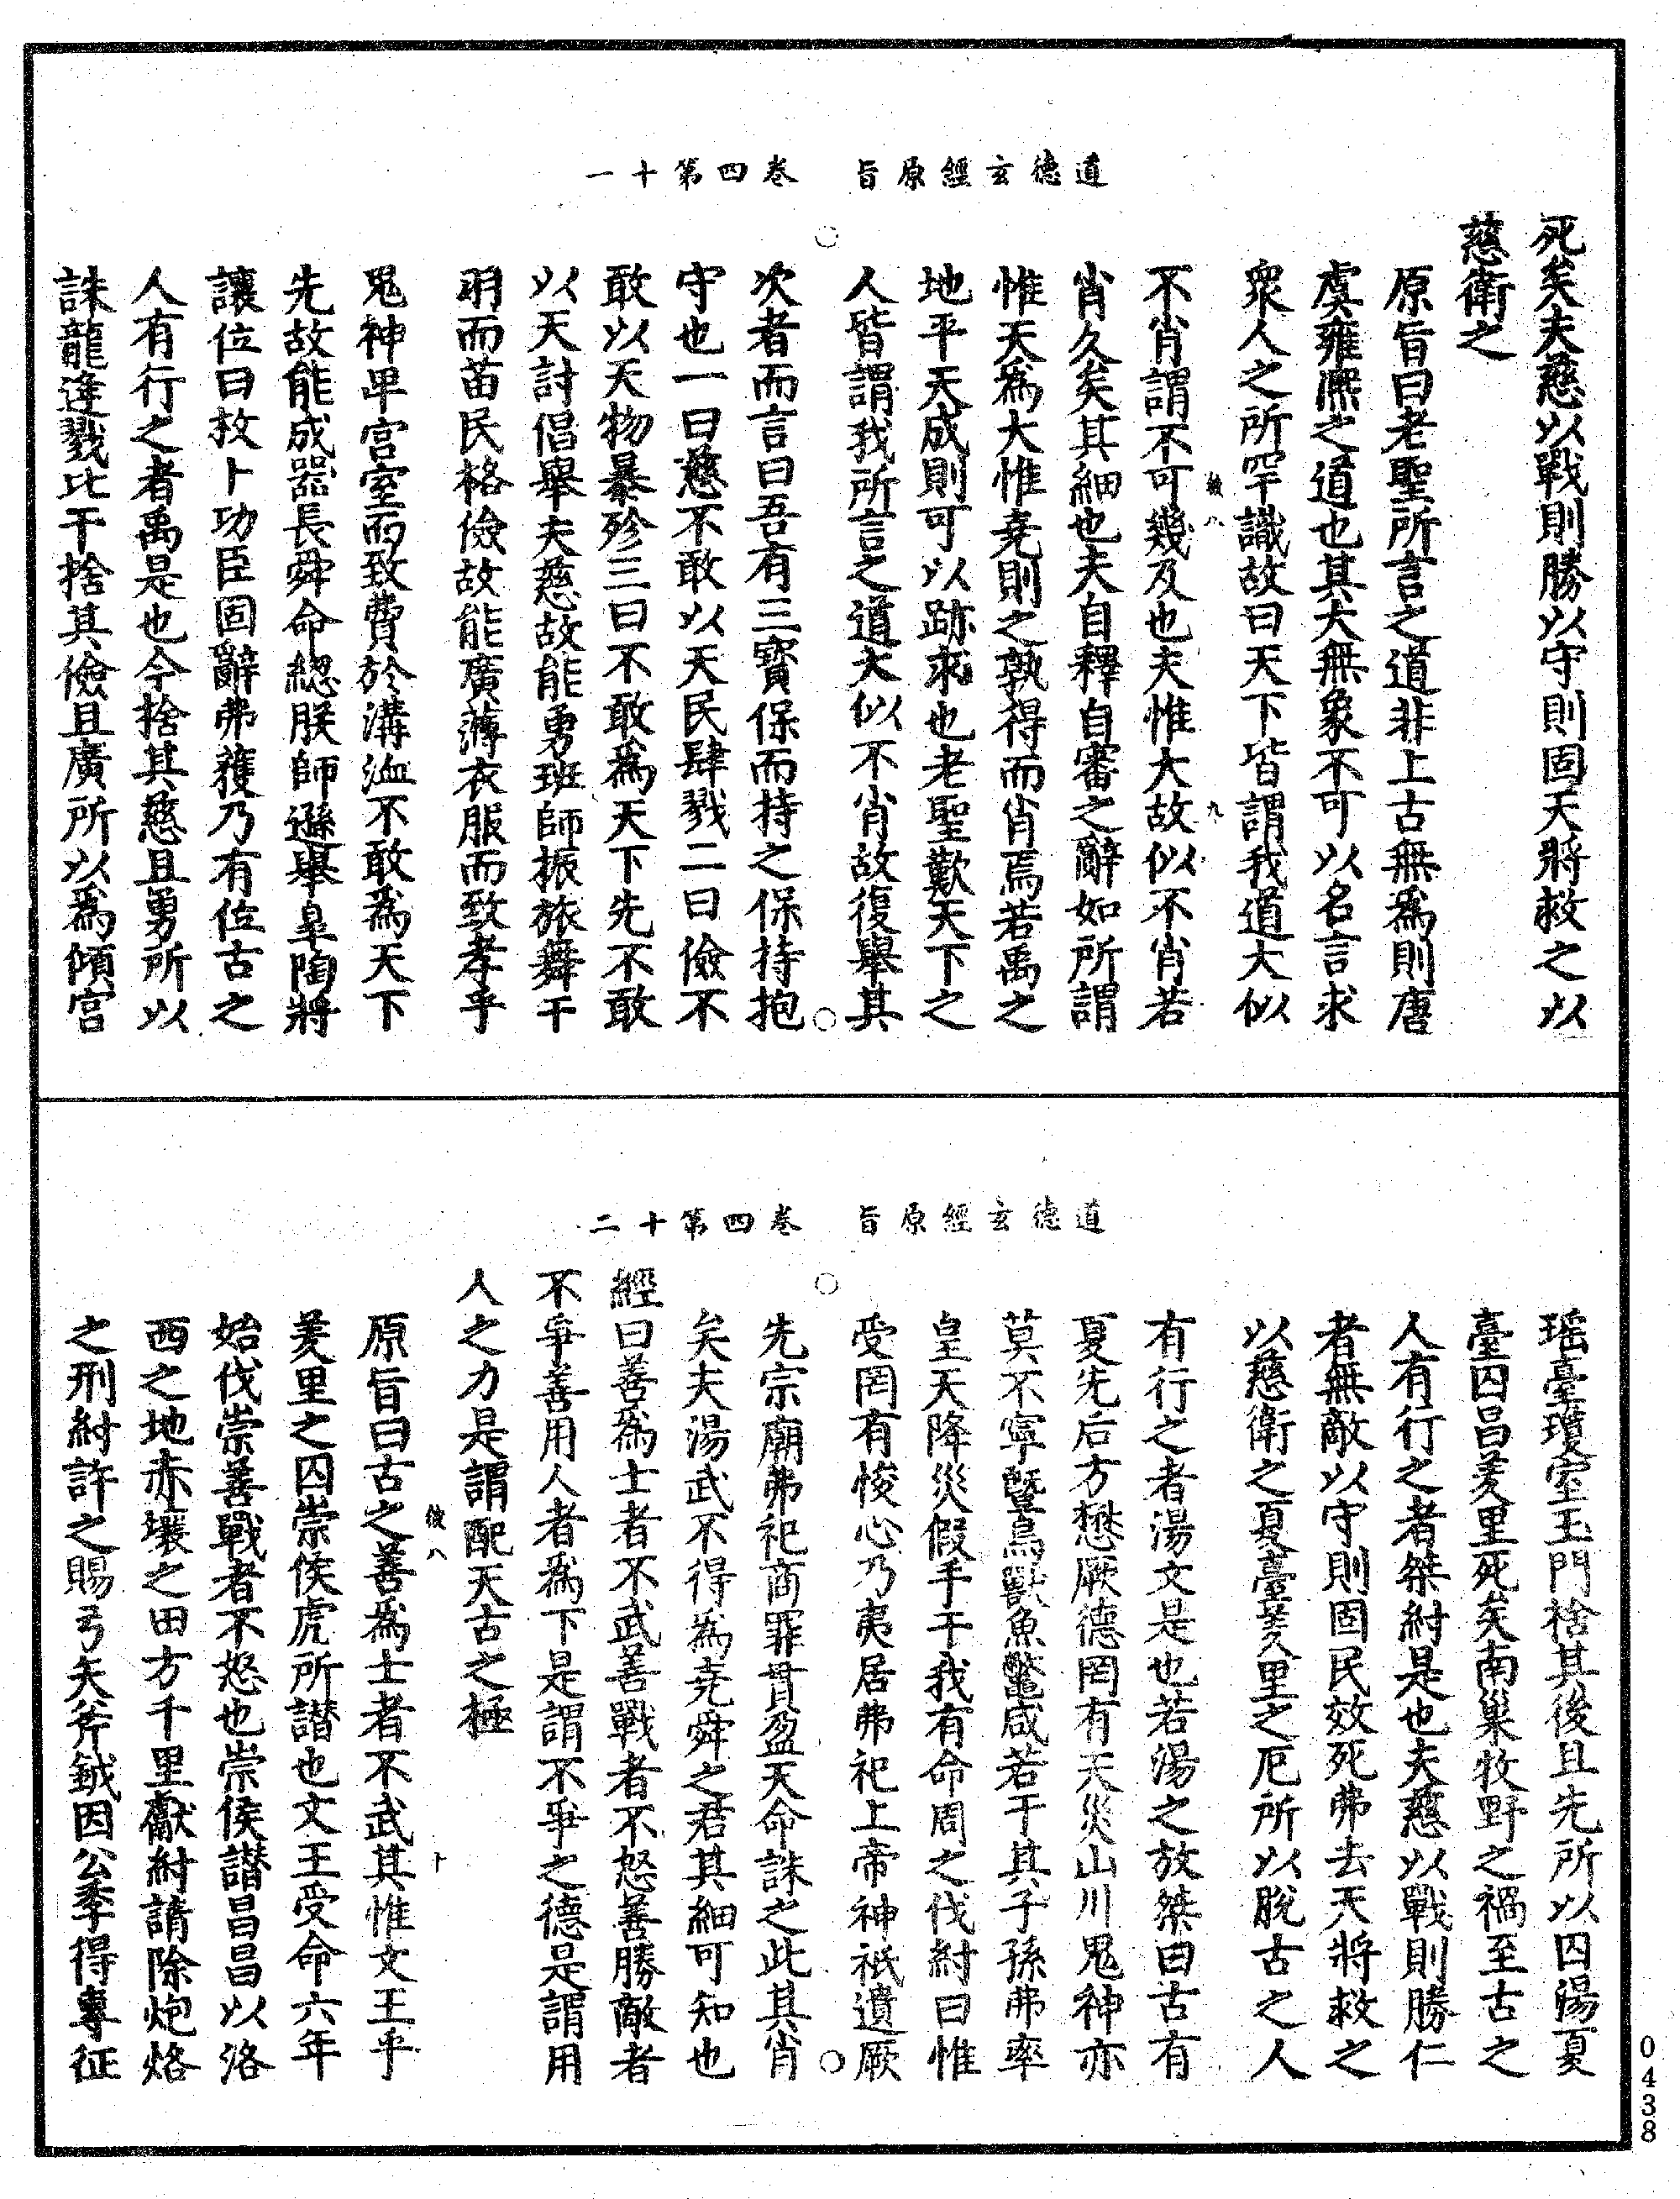 道德玄經原旨　卷四第十一
死矣夫慈以戰則勝以守則固天將救之以
慈衛之
原旨曰老聖所言之道非上古無為則唐
虞雍熈之道也其大無象不可以名言求
衆人之所罕識故曰天下皆謂我道大似
不肖謂不可幾及也夫惟大故似不肖若
肖久矣其細也夫自釋自審之辭如所謂
惟天為大惟堯則之孰得而肖焉若禹之
地平天成則可以跡求也老聖歎天下之
人皆謂我所言之道大似不肖故復舉其
次者而言曰吾有三寳保而持之保持抱
守也一曰慈不敢以天民肆戮二曰儉不
敢以天物暴殄三曰不敢為天下先不敢
以天討倡舉夫慈故能勇班師振旅舞干
羽而苗民格儉故能廣薄衣服而致孝乎
鬼神卑宫室而致費於溝洫不敢為天下
先故能成器長舜命緫朕師遜舉臯陶將
讓位曰枚卜功臣固辭弗獲乃有位古之
人有行之者禹是也今捨其慈且勇所以
誅龍逄戮比干捨其儉且廣所以為傾宫
道德玄經原旨　卷四第十二
瑶臺瓊室玉門捨其後且先所以囚湯夏
臺囚昌羑里死矣南巢牧野之禍至古之
人有行之者桀紂是也夫慈以戰則勝仁
者無敵以守則固民效死弗去天將救之
以慈衛之夏臺羑里之厄所以脫古之人
有行之者湯文是也若湯之放桀曰古有
夏先后方懋厥德罔有天災山川鬼神亦
莫不寧曁鳥獸魚鼈咸若于其子孫弗率
皇天降災假手于我有命周之伐紂曰惟
受罔有悛心乃夷居弗祀上帝神祇遺厥
先宗廟弗祀商罪貫盈天命誅之此其肖
矣夫湯武不得為堯舜之君其細可知也
經曰善為士者不武善戰者不怒善勝敵者
不爭善用人者為下是謂不爭之德是謂用
人之力是謂配天古之極
原旨曰古之善為士者不武其惟文王乎
羑里之囚崇侯虎所譖也文王受命六年
始伐崇善戰者不怒也崇侯譖昌昌以洛
西之地赤壤之田方千里獻紂請除炮烙
之刑紂許之賜弓矢斧鉞因公季得專征
0438